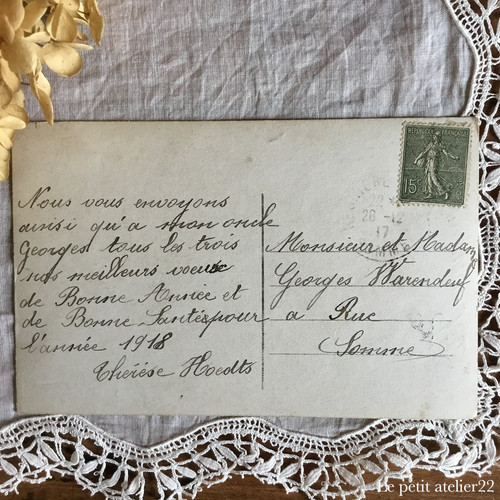 Nous vous envoyons
ainsi qu'a mon oncle
Georges tous les trois
nos meilleurs voeux
de Bonne Année et
de Bonne Santée pour
l'année 1918
Thérèse Hoedts
REPUBLIQUE FRANÇAISE
15c
28 -12
17
Monsieur et Madame
Georges Warendeuf
a Rue
Somme
Le petit atelier22